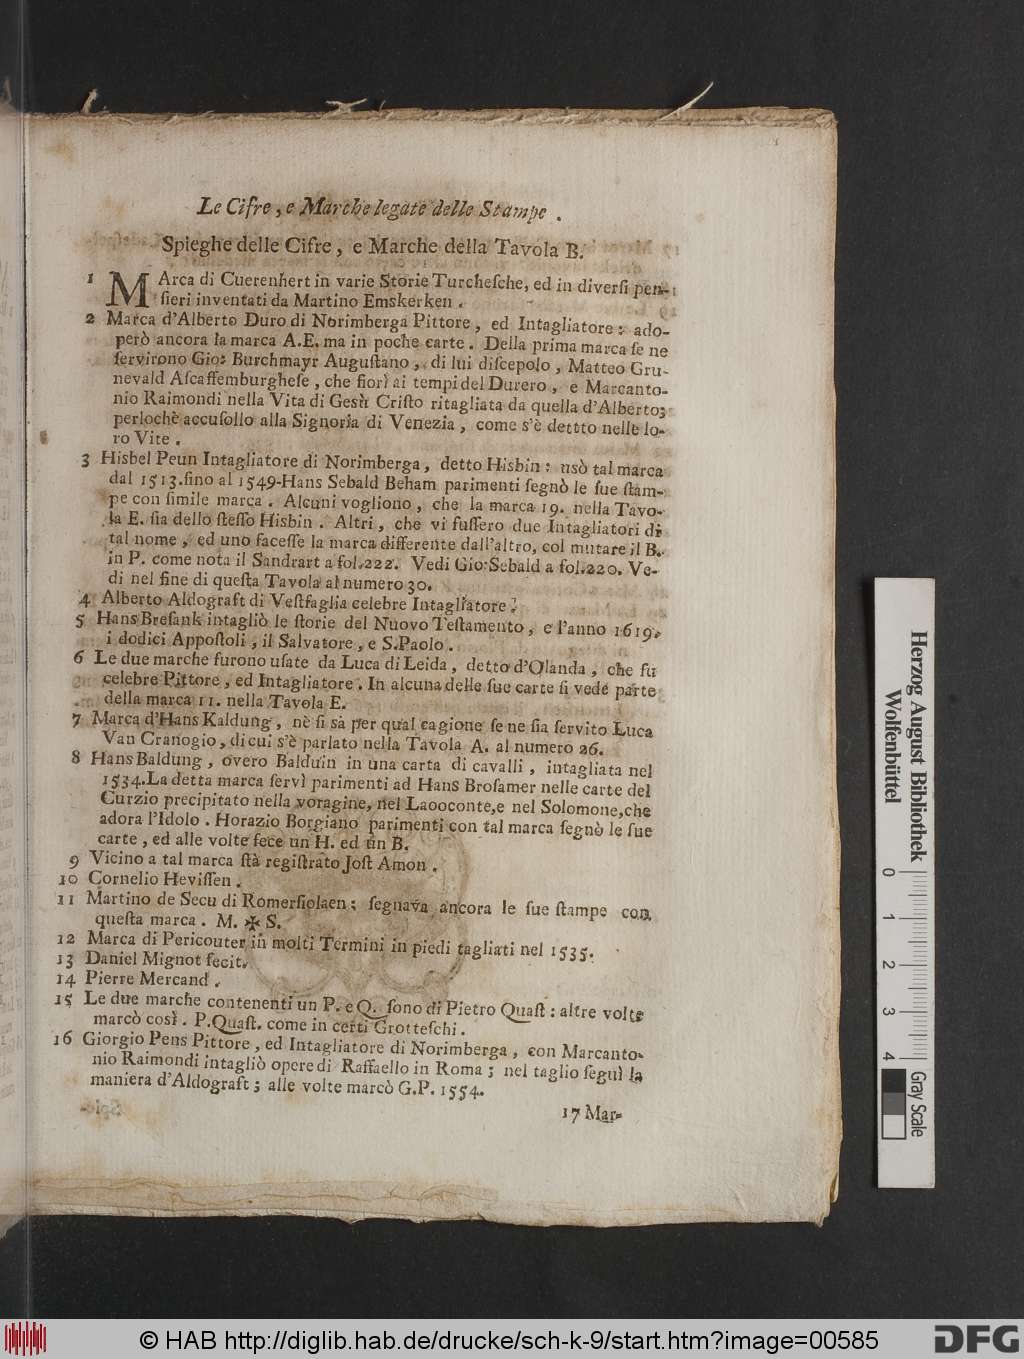 Le Cifre, e Marche legate delle Stampe.
Spieghe delle Cifre, e Marche della Tavola B.
1 MArca di Cuerenhert in varie Storie Turcheſche, ed in diverſi pen-
ſieri inventati da Martino Emskerken.
2 Marca d'Alberto Duro di Norimberga Pittore, ed Intagliatore: ado-
però ancora la marca A.E. ma in poche carte. Della prima marca ſe ne
ſervirono Gio: Burchmayr Auguſtano, di lui diſcepolo, Matteo Gru-
nevald Aſcaffemburgheſe, che fiorì ai tempi del Durero, e Marcanto-
nio Raimondi nella Vita di Gesù Criſto ritagliata da quella d'Alberto;
perlochè accuſollo alla Signoria di Venezia, come s'è dettto nelle lo-
ro Vite.
3 Hisbel Peun Intagliatore di Norimberga, detto Hisbin: usò tal marca
dal 1513. ſino al 1549-Hans Sebald Beham parimenti ſegnò le ſue ſtam-
pe con ſimile marca. Alcuni vogliono, che la marca 19. nella Tavo-
la E. ſia dello ſteſſo Hisbin. Altri, che vi fuſſero due Intagliatori di
tal nome, ed uno faceſſe la marca differente dall'altro, col mutare il B.
in P. come nota il Sandrart a fol.222. Vedi Gio: Sebald a fol.220. Ve-
di nel fine di queſta Tavola al numero 30.
4 Alberto Aldograft di Veſtfaglia celebre Intagliatore.
5 Hans Breſank intagliò le ſtorie del Nuovo Teſtamento, e l'anno 1619.
i dodici Appoſtoli, il Salvatore, e S.Paolo.
6 Le due marche furono uſate da Luca di Leida, detto d'Olanda, che fu
celebre Pittore, ed Intagliatore. In alcuna delle ſue carte ſi vede parte
della marca 11. nella Tavola E.
7 Marca d'Hans Kaldung, nè ſi sà per qual cagione ſe ne ſia ſervito Luca
Van Cranogio, di cui s'è parlato nella Tavola A. al numero 26.
8 Hans Baldung, overo Balduin in una carta di cavalli, intagliata nel
1534. La detta marca ſervì parimenti ad Hans Broſamer nelle carte del
Curzio precipitato nella voragine, nel Laooconte, e nel Solomone, che
adora l'Idolo. Horazio Borgiano parimenti con tal marca ſegnò le ſue
carte, ed alle volte fece un H. ed un B.
9 Vicino a tal marca ſtà regiſtrato Joſt Amon.
10 Cornelio Heviſſen.
11 Martino de Secu di Romerſiolaen; ſegnava ancora le ſue ſtampe con
queſta marca. M. ✠ S.
12 Marca di Pericouter in molti Termini in piedi tagliati nel 1535.
13 Daniel Mignot fecit.
14 Pierre Mercand.
15 Le due marche contenenti un P. e Q. ſono di Pietro Quaſt: altre volte
marcò così. P.Quaſt. come in certi Grotteſchi.
16 Giorgio Pens Pittore, ed Intagliatore di Norimberga, con Marcanto-
nio Raimondi intagliò opere di Raffaello in Roma; nel taglio ſeguì la
maniera d'Aldograft; alle volte marcò G.P. 1554.
17 Mar-
Herzog August Bibliothek
Wolfenbüttel
0 1 2 3 4
Gray Scale
© HAB http://diglib.hab.de/drucke/sch-k-9/start.htm?image=00585
DFG